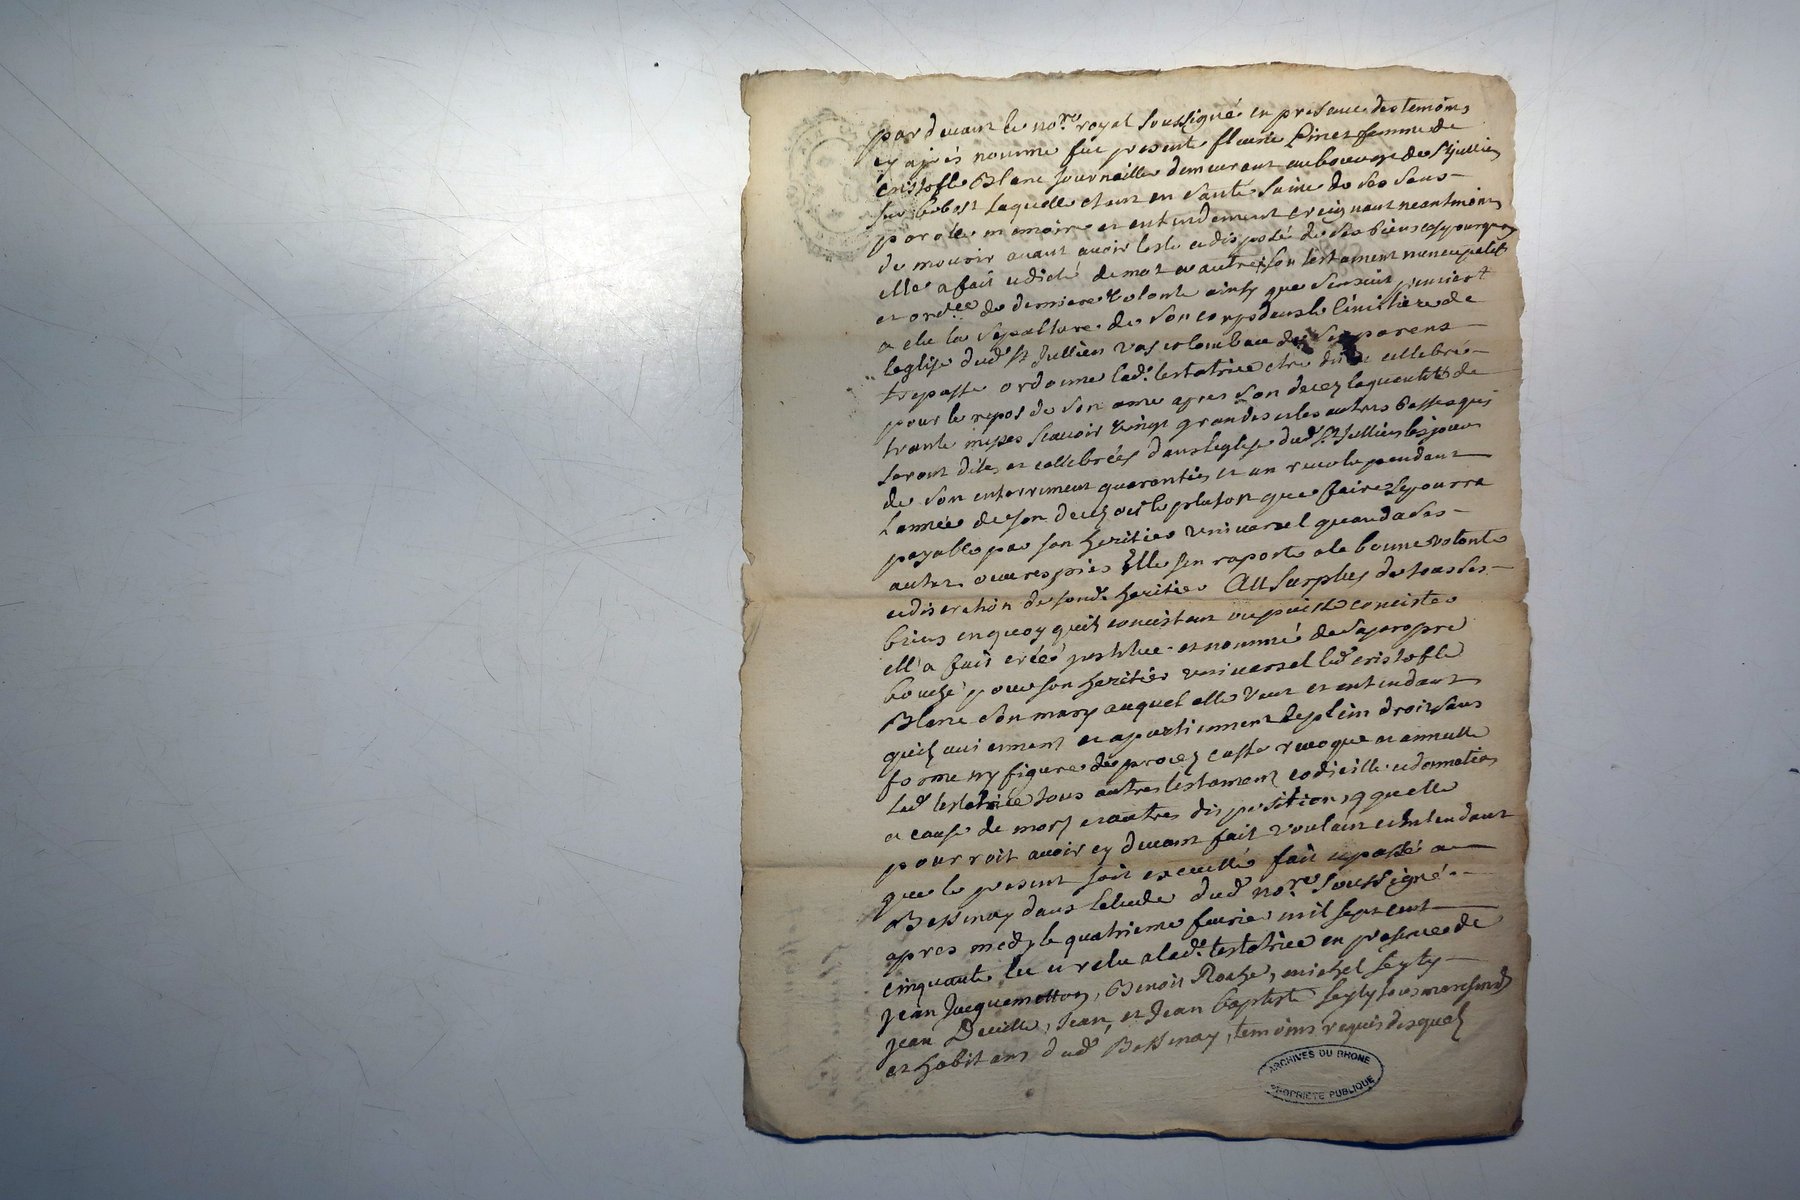 par devant le no.re royal soussigné en presence des temoins
cy apres nommé fut presente fleurie Pinet femme de
cristofle Blanc journaillier demeurant au bourg de St jullien
sur bibost laquelle etant en santé saine de ses sens
parolle memoire et entendement creignant neantmoins
de mourir avant avoir testé et disposé de ses biens cest pourquoy
elle a fait et dicté de mot a autre son testament noncupatif
et ord.ce de derniere volonté ainsy que sensuit premiert
a elu la sepulture de son corps dans le cimitiere de
leglise dud. St Jullien vas et tombeau de ses parens
trepassé ordonne lad. testatrice etre dit et cellebré
pour le repos de son ame apres son decez la quantité de
trante messes scavoir vingt grandes et les autres basses qui
seront dites et cellebrées dans leglise dud. St Jullien les jours
de son enterrement quarantin et an revolu pendant
lannée de son decez ou le plutost que faire se pourra
payable par son heritier universel quand a ses
autres oeuvres pies Elle sen raporte a la bonne volonté
et discretion de sond. heritier Au Surplus de tous ses
biens en quoy quils concistent ou puisse concister
ell a fait créé institué et nommé de sa propre
bouche pour son heritier universel led. cristofle
Blanc son mary auquel elle veut et entendant
quils aviennent et apartiennent de plein droit sans
forme ny figure de procez casse revoque et annulle
lad. testatrice tous autres testament codicille et donnation
a cause de mort et autres dispositions quelle
pourroit avoir cy devant fait voulant et entendant
que le present soit executté fait et passé a
Bessenay dans letude dud. no.re soussigné
apres midy le quatrieme fevrier mil sept cent
cinquante lu et relu a lad. testatrice en presence de
jean Jacquemetton, Benoit Roche, michel Seyty
jean Deville, Jean, et Jean baptiste Seyty tous marchands
et habitans dud. Bessenay, temoins requis desquels
ARCHIVES DU RHONE
PROPRIETE PUBLIQUE